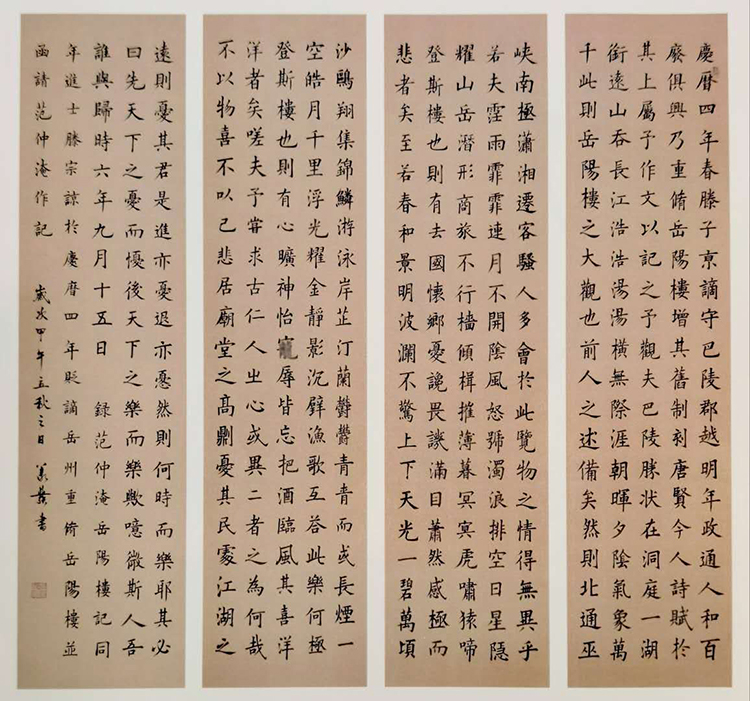 慶曆四年春滕子京謫守巴陵郡越明年政通人和百
廢俱興乃重脩岳陽樓增其舊制刻唐賢今人詩賦於
其上屬予作文以記之予觀夫巴陵勝狀在洞庭一湖
銜遠山吞長江浩浩湯湯橫無際涯朝暉夕陰氣象萬
千此則岳陽樓之大觀也前人之述備矣然則北通巫
峽南極瀟湘遷客騷人多會於此覽物之情得無異乎
若夫霪雨霏霏連月不開陰風怒號濁浪排空日星隱
耀山岳潛形商旅不行檣傾楫摧薄暮冥冥虎嘯猿啼
登斯樓也則有去國懷鄉憂讒畏譏滿目蕭然感極而
悲者矣至若春和景明波瀾不驚上下天光一碧萬頃
沙鷗翔集錦鱗游泳岸芷汀蘭鬱鬱青青而或長煙一
空皓月千里浮光耀金靜影沉璧漁歌互答此樂何極
登斯樓也則有心曠神怡寵辱皆忘把酒臨風其喜洋
洋者矣嗟夫予嘗求古仁人之心或異二者之為何哉
不以物喜不以己悲居廟堂之高則憂其民處江湖之
遠則憂其君是進亦憂退亦憂然則何時而樂耶其必
曰先天下之憂而懮後天下之樂而樂歟噫微斯人吾
誰與歸時六年九月十五日 錄范仲淹岳陽樓記同
年進士滕宗諒於慶曆四年貶謫岳州重脩岳陽樓並
函請范仲淹作記 歲次甲午立秋之日 書